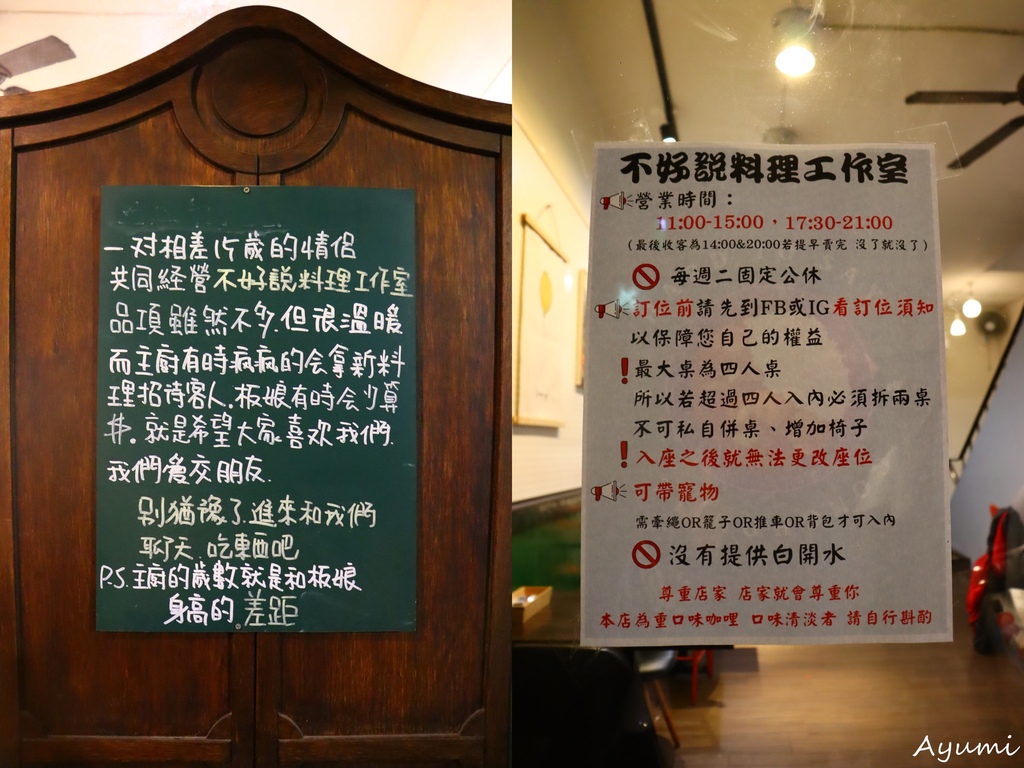 一对相差15歲的情侶
共同經營不好說料理工作室
品項雖然不多.但很溫暖
而主廚有時瘋瘋的会拿新料
理招待客人.板娘有時会少算
井。就是希望大家喜欢我們.
我們愛交朋友.
別猶豫了.進來和我們
聊天.吃東西吧
P.S.主廚的歲數就是和板娘
身高的.差距
不好説料理工作室
營業時間：
11:00-15:00，17:30-21:00
(最後收客為14:00&20:00若提早賣完 沒了就沒了)
每週二固定公休
訂位前請先到FB或IG看訂位須知
以保障您自己的權益
!最大桌為四人桌
所以若超過四人入內必須拆兩桌
不可私自併桌、增加椅子
!入座之後就無法更改座位
可帶寵物
需牽繩OR籠子OR推車OR背包才可入內
沒有提供白開水
尊重店家 店家就會尊重你
本店為重口味咖哩 口味清淡者 請自行斟酌
Ayumi